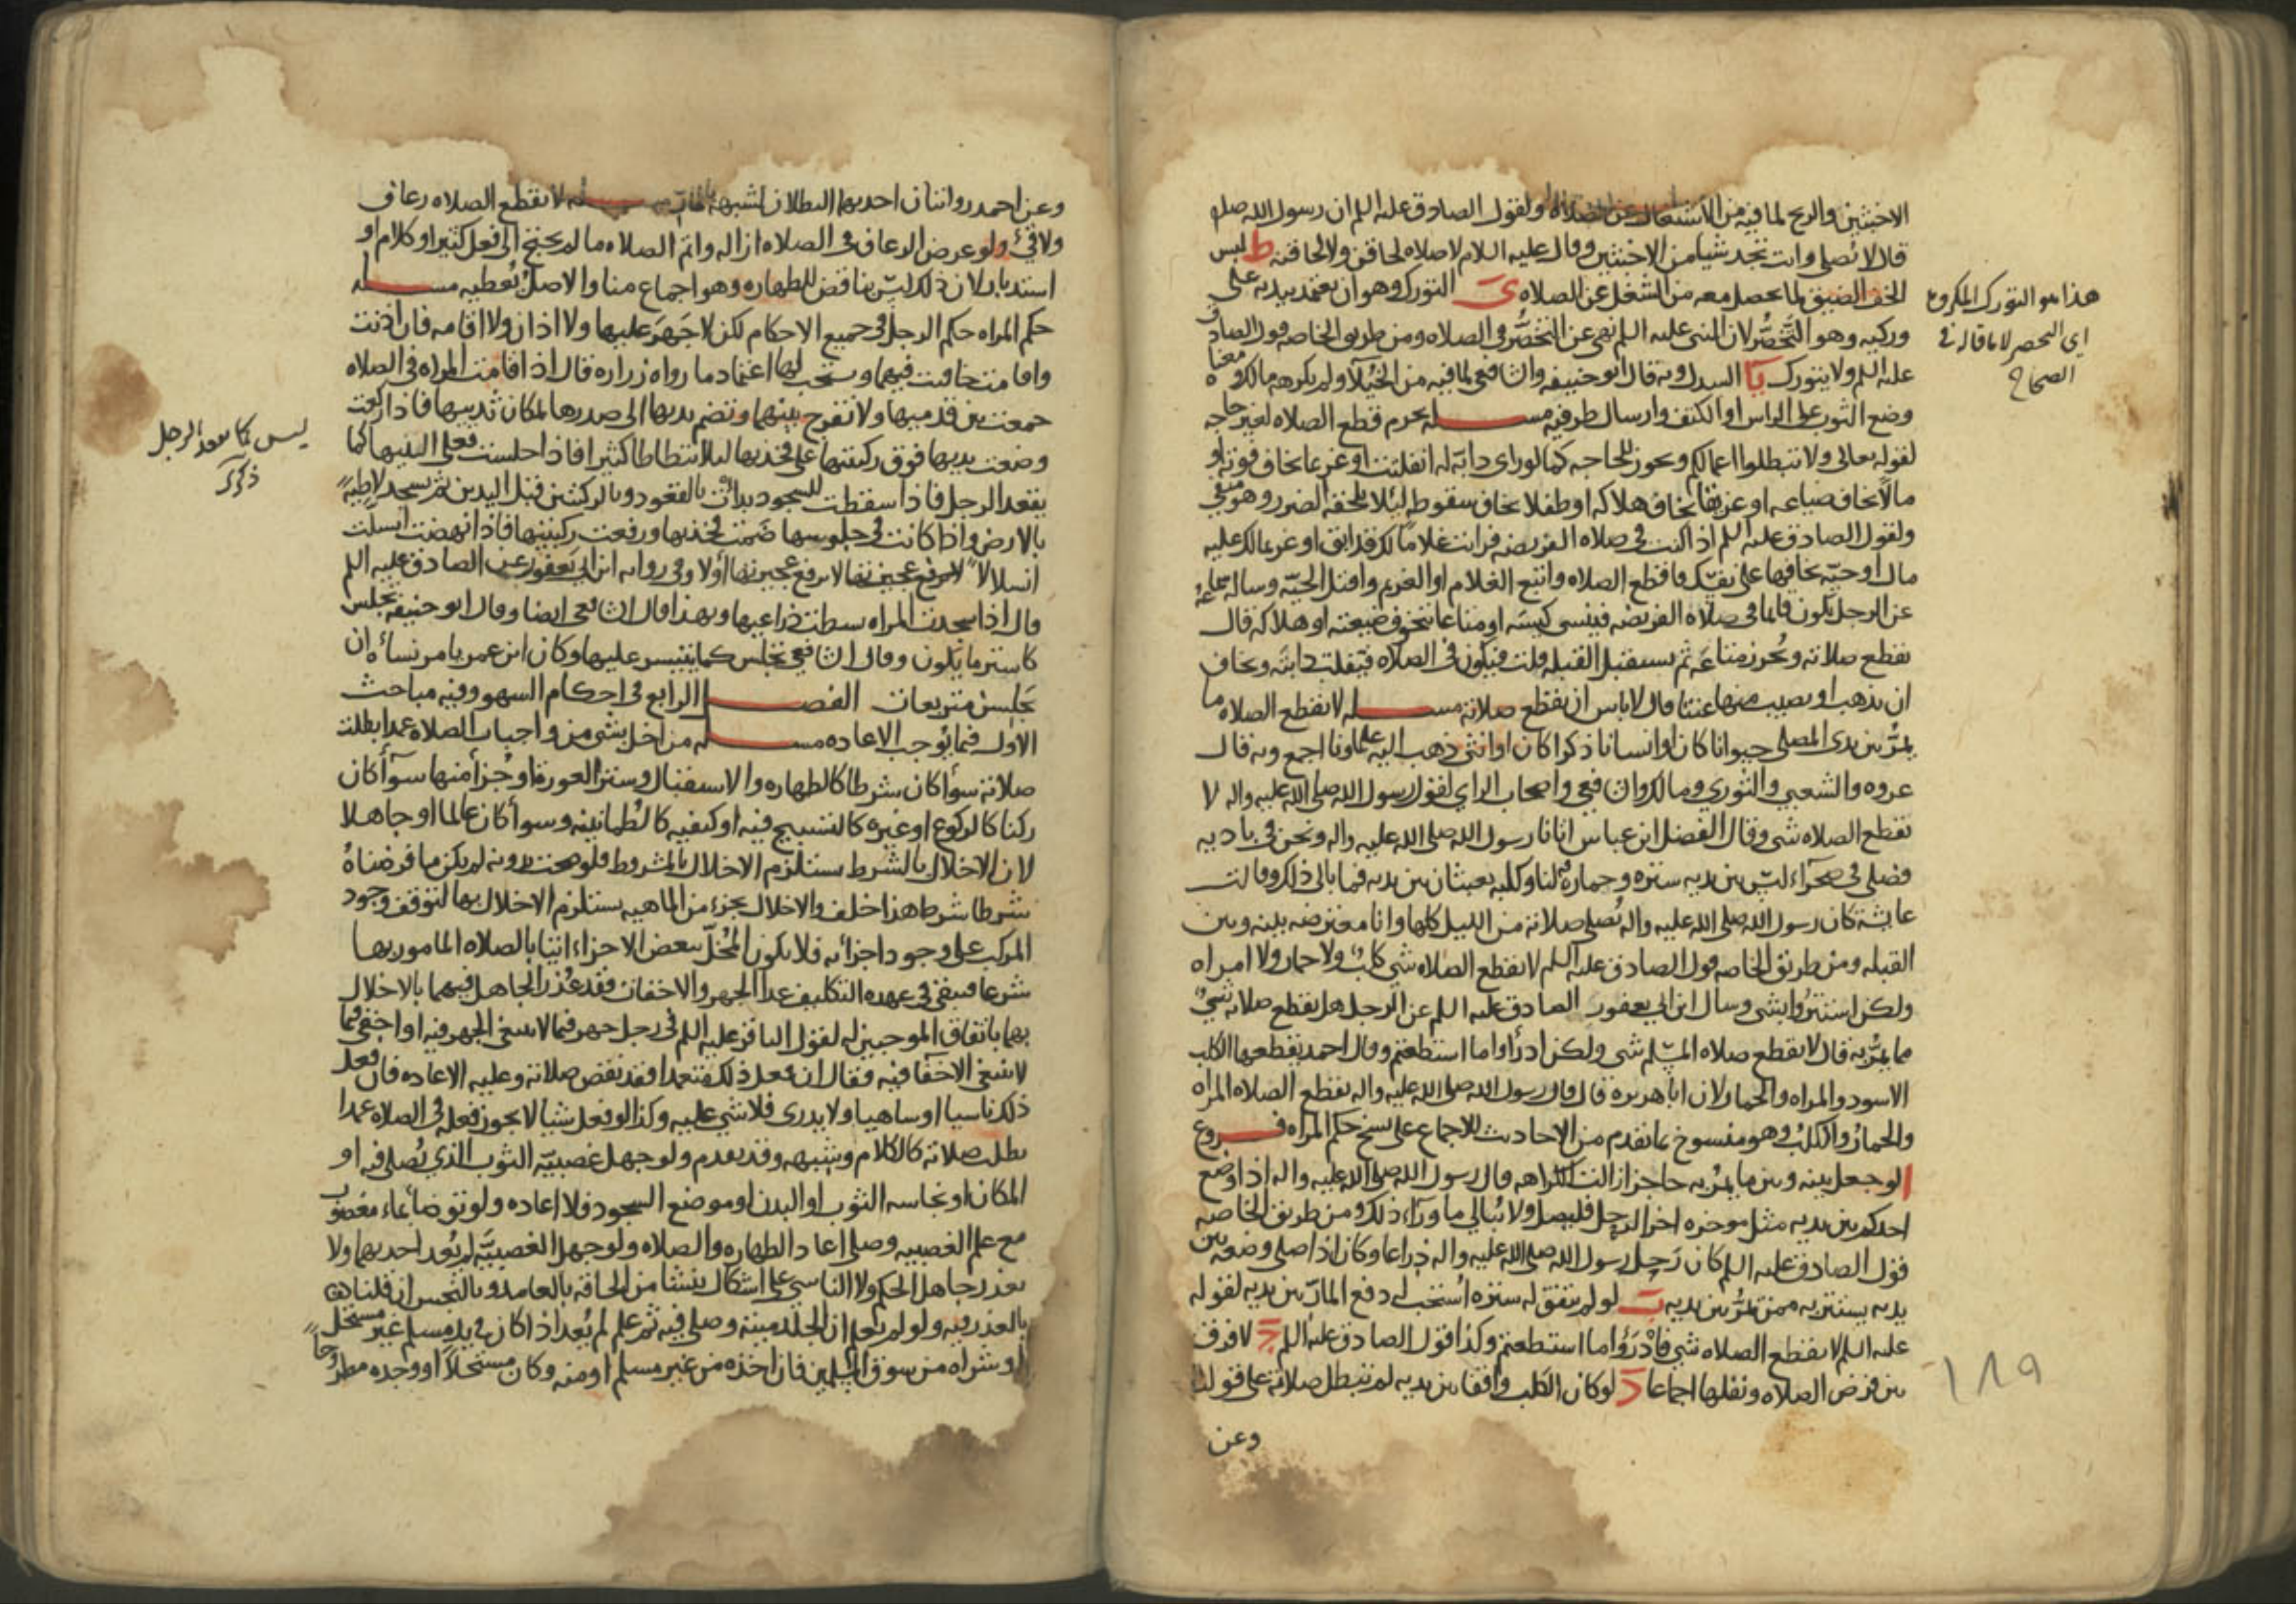 الاخبثين والريح لما فيه من الاشتغال عن الصلاه ولقول الصادق عليه السلم ان رسول الله صلى
قال لا تصلي وانت تجد شيا من الاخبثين وقال عليه السلام لا صلاه لحاقن ولا لحاقنه ط لبس
الخف الضيق لما يحصل معه من الشغل عن الصلاه ى التورك وهو ان يعتمد بيديه على
وركيه وهو التخصُّر لان النبي عليه السلم نهى عن التخصُّر في الصلاه ومن طريق الخاصه قول الصادق
عليه السلم ولا يتورك يا السدل وبه قال ابو حنيفه والشافعي لما فيه من الخيلاء ولم يكرهه مالك ومعناه
وضع الثوب على الراس او الكتف وارسال طرفيه مسله يحرم قطع الصلاه لغير حاجه
لقوله تعالى ولا تبطلوا اعمالكم ويجوز للحاجه كما لو راى دابّة له انفلتت او غريما يخاف فوته او
مالًا يخاف ضياعه او غريقا يخاف هلاكه او طفلا يخاف سقوطه لئلا يلحقه الضرر وهو منفي
ولقول الصادق عليه السلم اذا كنت في صلاه الفريضه فرايت غلاماً لك قد ابق او غريما لك عليه
مال او حيّه تخافها على نفسك فاقطع الصلاه واتبع الغلام او الغريم واقتل الحيّه وساله سماعه
عن الرجل يكون قائما في صلاه الفريضه فينسى كيسه او متاعا يتخوف ضيعته او هلاكه قال
يقطع صلاته ويُحرز متاعَه ثم يستقبل القبله قلت فيكون في الصلاه فتفلت دابته ويخاف
ان يذهب او يصيب منها عنتا قال لا باس ان يقطع صلاته مسله لا يقطع الصلاه ما
يمُرّ بين يدي المصلي حيوانا كان او انسانا ذكرا كان او انثى ذهب اليه علماونا اجمع وبه قال
عروه والشعبي والثوري ومالك والشافعي واصحاب الراي لقول رسول الله صلى الله عليه واله لا
يقطع الصلاه شي وقال الفضل ابن عباس اتانا رسول الله صلى الله عليه واله ونحن في باديه
فصلى في صحرآء ليس بين يديه ستره وحماره لنا وكلبه يعبثان بين يديه فما بالى ذلك وقالت
عايشه كان رسول الله صلى الله عليه واله يُصلي صلاته من الليل كلها وانا معترضه بينه وبين
القبله ومن طريق الخاصه قول الصادق عليه السلم لا يقطع الصلاه شي كلبٌ ولا حمار ولا امراه
ولكن استتروا بشي وسال ابن ابي يعفور الصادق عليه السلم عن الرجل هل يقطع صلاته شيٌ
مما يمرُّ به قال لا يقطع صلاه المسلم شي ولكن ادرأوا ما استطعتم وقال احمد يقطعها الكلب
الاسود والمراه والحمار لان ابا هريره قال قال رسول الله صلى الله عليه واله يقطع الصلاه المراه
والحمارُ والكلبُ وهو منسوخ بما تقدم من الاحاديث للاجماع على نسخ حكم المراه فروع
ا لو جعل بينه وبين ما يمرُّ به حاجزا زالت الكراهه قال رسول الله صلى الله عليه واله اذا وضع
احدكم بين يديه مثل موخره اخر الرحل فليصل ولا يُبالي ما ورآء ذلك ومن طريق الخاصه
قول الصادق عليه السلم كان رَحل رسول الله صلى الله عليه واله ذراعا وكان اذا صلى وضعه بين
يديه يستتر به ممن يمُرُّ بين يديه ب لو لم يتفق له ستره اُستحب له دفع المارّ بين يديه لقوله
عليه السلم لا يقطع الصلاه شي فادْرَؤُا ما استطعتم وكذا قول الصادق عليه السلم ج لا فرق
بين فرض الصلاه ونفلها اجماعا د لو كان الكلب واقفا بين يديه لم تبطل صلاته على قولنا
وعن
هذا هو التورك المكروه
اي التخصر لا ما قاله في
الصحاح
١٨٩
وعن احمد روايتان احديهما البطلان لشبهه بالمارّ مسله لا يقطع الصلاه رعاف
ولا قيءٌ ولو عرض الرعاف في الصلاه ازاله واتم الصلاه ما لم يحتج الى فعل كثير او كلام او
استدبار لان ذلك ليس بناقض للطهاره وهو اجماع منا والاصل يُعطيه مسله
حكم المراه حكم الرجل في جميع الاحكام لكن لا جَهرَ عليها ولا اذان ولا اقامه فان اذنت
واقامت خافتت فيهما ويستحب لها اعتماد ما رواه زراره قال اذا قامت المراه في الصلاه
جمعت بين قدميها ولا تفرج بينهما وتضم يديها الى صدرها لمكان ثدييها فاذا ركعت
وضعت يديها فوق ركبتيها على فخذيها ليلا تتطاطا كثيرا فاذا جلست فعلى اليتيها كما
يقعد الرجل فاذا سقطت للسجود بدات بالقعود وبالركبتين قبل اليدين ثم تسجد لاطيه
بالارض واذا كانت في جلوسها ضمت فخذيها ورفعت ركبتيها فاذا نهضت انسلت
انسلالا لا ترفع عجيزتها اولا وفي روايه ابن ابي يعفور عن الصادق عليه السلم
قال اذا سجدت المراه بسطت ذراعيها وبهذا قال الشافعي ايضا وقال ابو حنيفه تجلس
كاستر ما يكون وقال الشافعي تجلس كما يتيسر عليها وكان ابن عمر يامر نساءه ان
يجلسن متربعات الفصل الرابع في احكام السهو وفيه مباحث
الاول فيما يوجب الاعاده مسله من اخل بشي من واجبات الصلاه عمدا بطلت
صلاته سوأ كان شرطا كالطهاره والاستقبال وستر العورة او جُزأ منها سوآء كان
ركنا كالركوع او غيره كالتسبيح فيه او كيفيه كالطُمانينه وسوأ كان عالما او جاهلا
لان الاخلال بالشرط يستلزم الاخلال بالمشروط فلو صحت بدونه لم يكن ما فرضناهُ
شرطا شرطا هذا خلف والاخلال بجزء من الماهيه يستلزم الاخلال بها لتوقف وجود
المركب على وجود اجزائه فلا يكون المُخلّ ببعض الاجزاء اتيا بالصلاه المامور بها
شرعا فيبقى في عهده التكليف عدا الجهر والاخفات فقد عُذر الجاهل فيهما بالاخلال
بهما باتفاق الموجبين له لقول الباقر عليه السلم في رجل جهر فيما لا ينبغي الجهر فيه او اخفى فيما
لا ينبغي الاخفا فيه فقال ان فعل ذلك متعمدا فقد نقض صلاته وعليه الاعاده فان فعل
ذلك ناسيا او ساهيا او لا يدري فلا شي عليه وكذا لو فعل شيا لا يجوز فعله في الصلاه عمدا
بطلت صلاته كالكلام وشبهه وقد تقدم ولو جهل غصبيّه الثوب الذي يُصلي فيه او
المكان او نجاسه الثوب او البدن او موضع السجود فلا اعاده ولو توضا بماء مغصوب
مع علم الغصبيه وصلى اعاد الطهاره والصلاه ولو جهل الغصبيّه لم يُعد احديهما ولا
يعذر جاهل الحكم ولا الناسي على اشكال ينشا من الحاقه بالعامد وبالنجس ان قلنا
بالعذر فيه ولو لم يعلم ان الجلد ميتة وصلى فيه ثم علم لم يُعد اذا كان في يد مسلم غير مستحل
او شراه من سوق المسلمين فان اخذه من غير مسلم او منه وكان مستحلاً او وجده مطروحاً
ليس كما يقعد الرجل
ذكرى